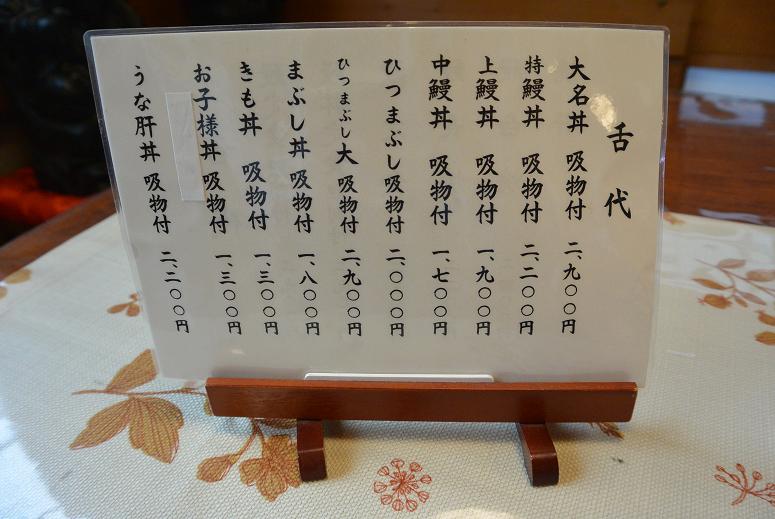 舌代
大名丼 吸物付 二、九〇〇円
特鰻丼 吸物付 二、二〇〇円
上鰻丼 吸物付 一、九〇〇円
中鰻丼 吸物付 一、七〇〇円
ひつまぶし吸物付 二、〇〇〇円
ひつまぶし大 吸物付 二、九〇〇円
まぶし丼 吸物付 一、八〇〇円
きも丼 吸物付 一、三〇〇円
お子様丼 吸物付 一、三〇〇円
うな肝丼 吸物付 二、二〇〇円